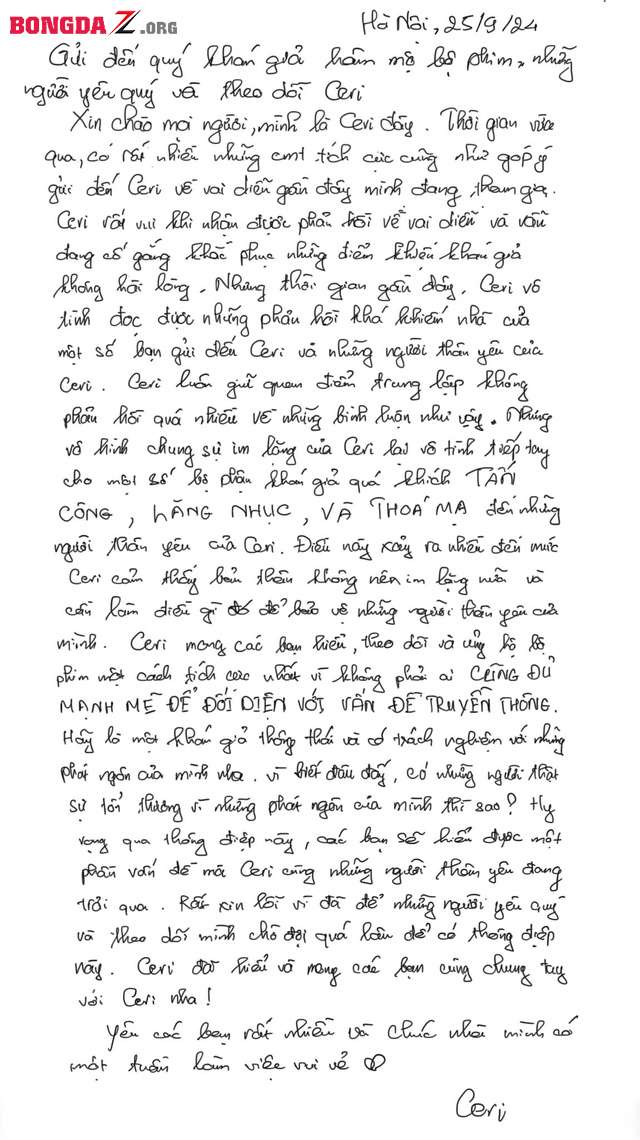 BONGDAZ.ORG
Hà Nội, 25/9/24
Gửi đến quý khán giả hâm mộ bộ phim, những
người yêu quý và theo dõi Ceri
Xin chào mọi người, mình là Ceri đây. Thời gian vừa
qua, có rất nhiều những cmt tích cực cũng như góp ý
gửi đến Ceri về vai diễn gần đây mình đang tham gia.
Ceri rất vui khi nhận được phản hồi về vai diễn và vẫn
đang cố gắng khắc phục những điểm khiến khán giả
không hài lòng. Nhưng thời gian gần đây, Ceri vô
tình đọc được những phản hồi khá khiếm nhã của
một số bạn gửi đến Ceri và những người thân yêu của
Ceri. Ceri luôn giữ quan điểm trung lập không
phản hồi quá nhiều về những bình luận như vậy. Nhưng
vô hình chung sự im lặng của Ceri lại vô tình tiếp tay
cho một số bộ phận khán giả quá khích TẤN
CÔNG, LĂNG NHỤC, VÀ THOÁ MẠ đến những
người thân yêu của Ceri. Điều này xảy ra nhiều đến mức
Ceri cảm thấy bản thân không nên im lặng nữa và
cần làm điều gì đó để bảo vệ những người thân yêu của
mình. Ceri mong các bạn hiểu, theo dõi và ủng hộ bộ
phim một cách tích cực nhất vì không phải ai CŨNG ĐỦ
MẠNH MẼ ĐỂ ĐỐI DIỆN VỚI VẤN ĐỀ TRUYỀN THÔNG.
Hãy là một khán giả thông thái và có trách nghiệm với những
phát ngôn của mình nha. Vì biết đâu đấy, có những người thật
sự tổn thương vì những phát ngôn của mình thì sao? Hy
vọng qua thông điệp này, các bạn sẽ hiểu được một
phần vấn đề mà Ceri cùng những người thân yêu đang
trải qua. Rất xin lỗi vì đã để những người yêu quý
và theo dõi mình chờ đợi quá lâu để có thông điệp
này. Ceri đã hiểu và mong các bạn cùng chung tay
với Ceri nha!
Yêu các bạn rất nhiều và chúc nhà mình có
một tuần làm việc vui vẻ ♡
Ceri